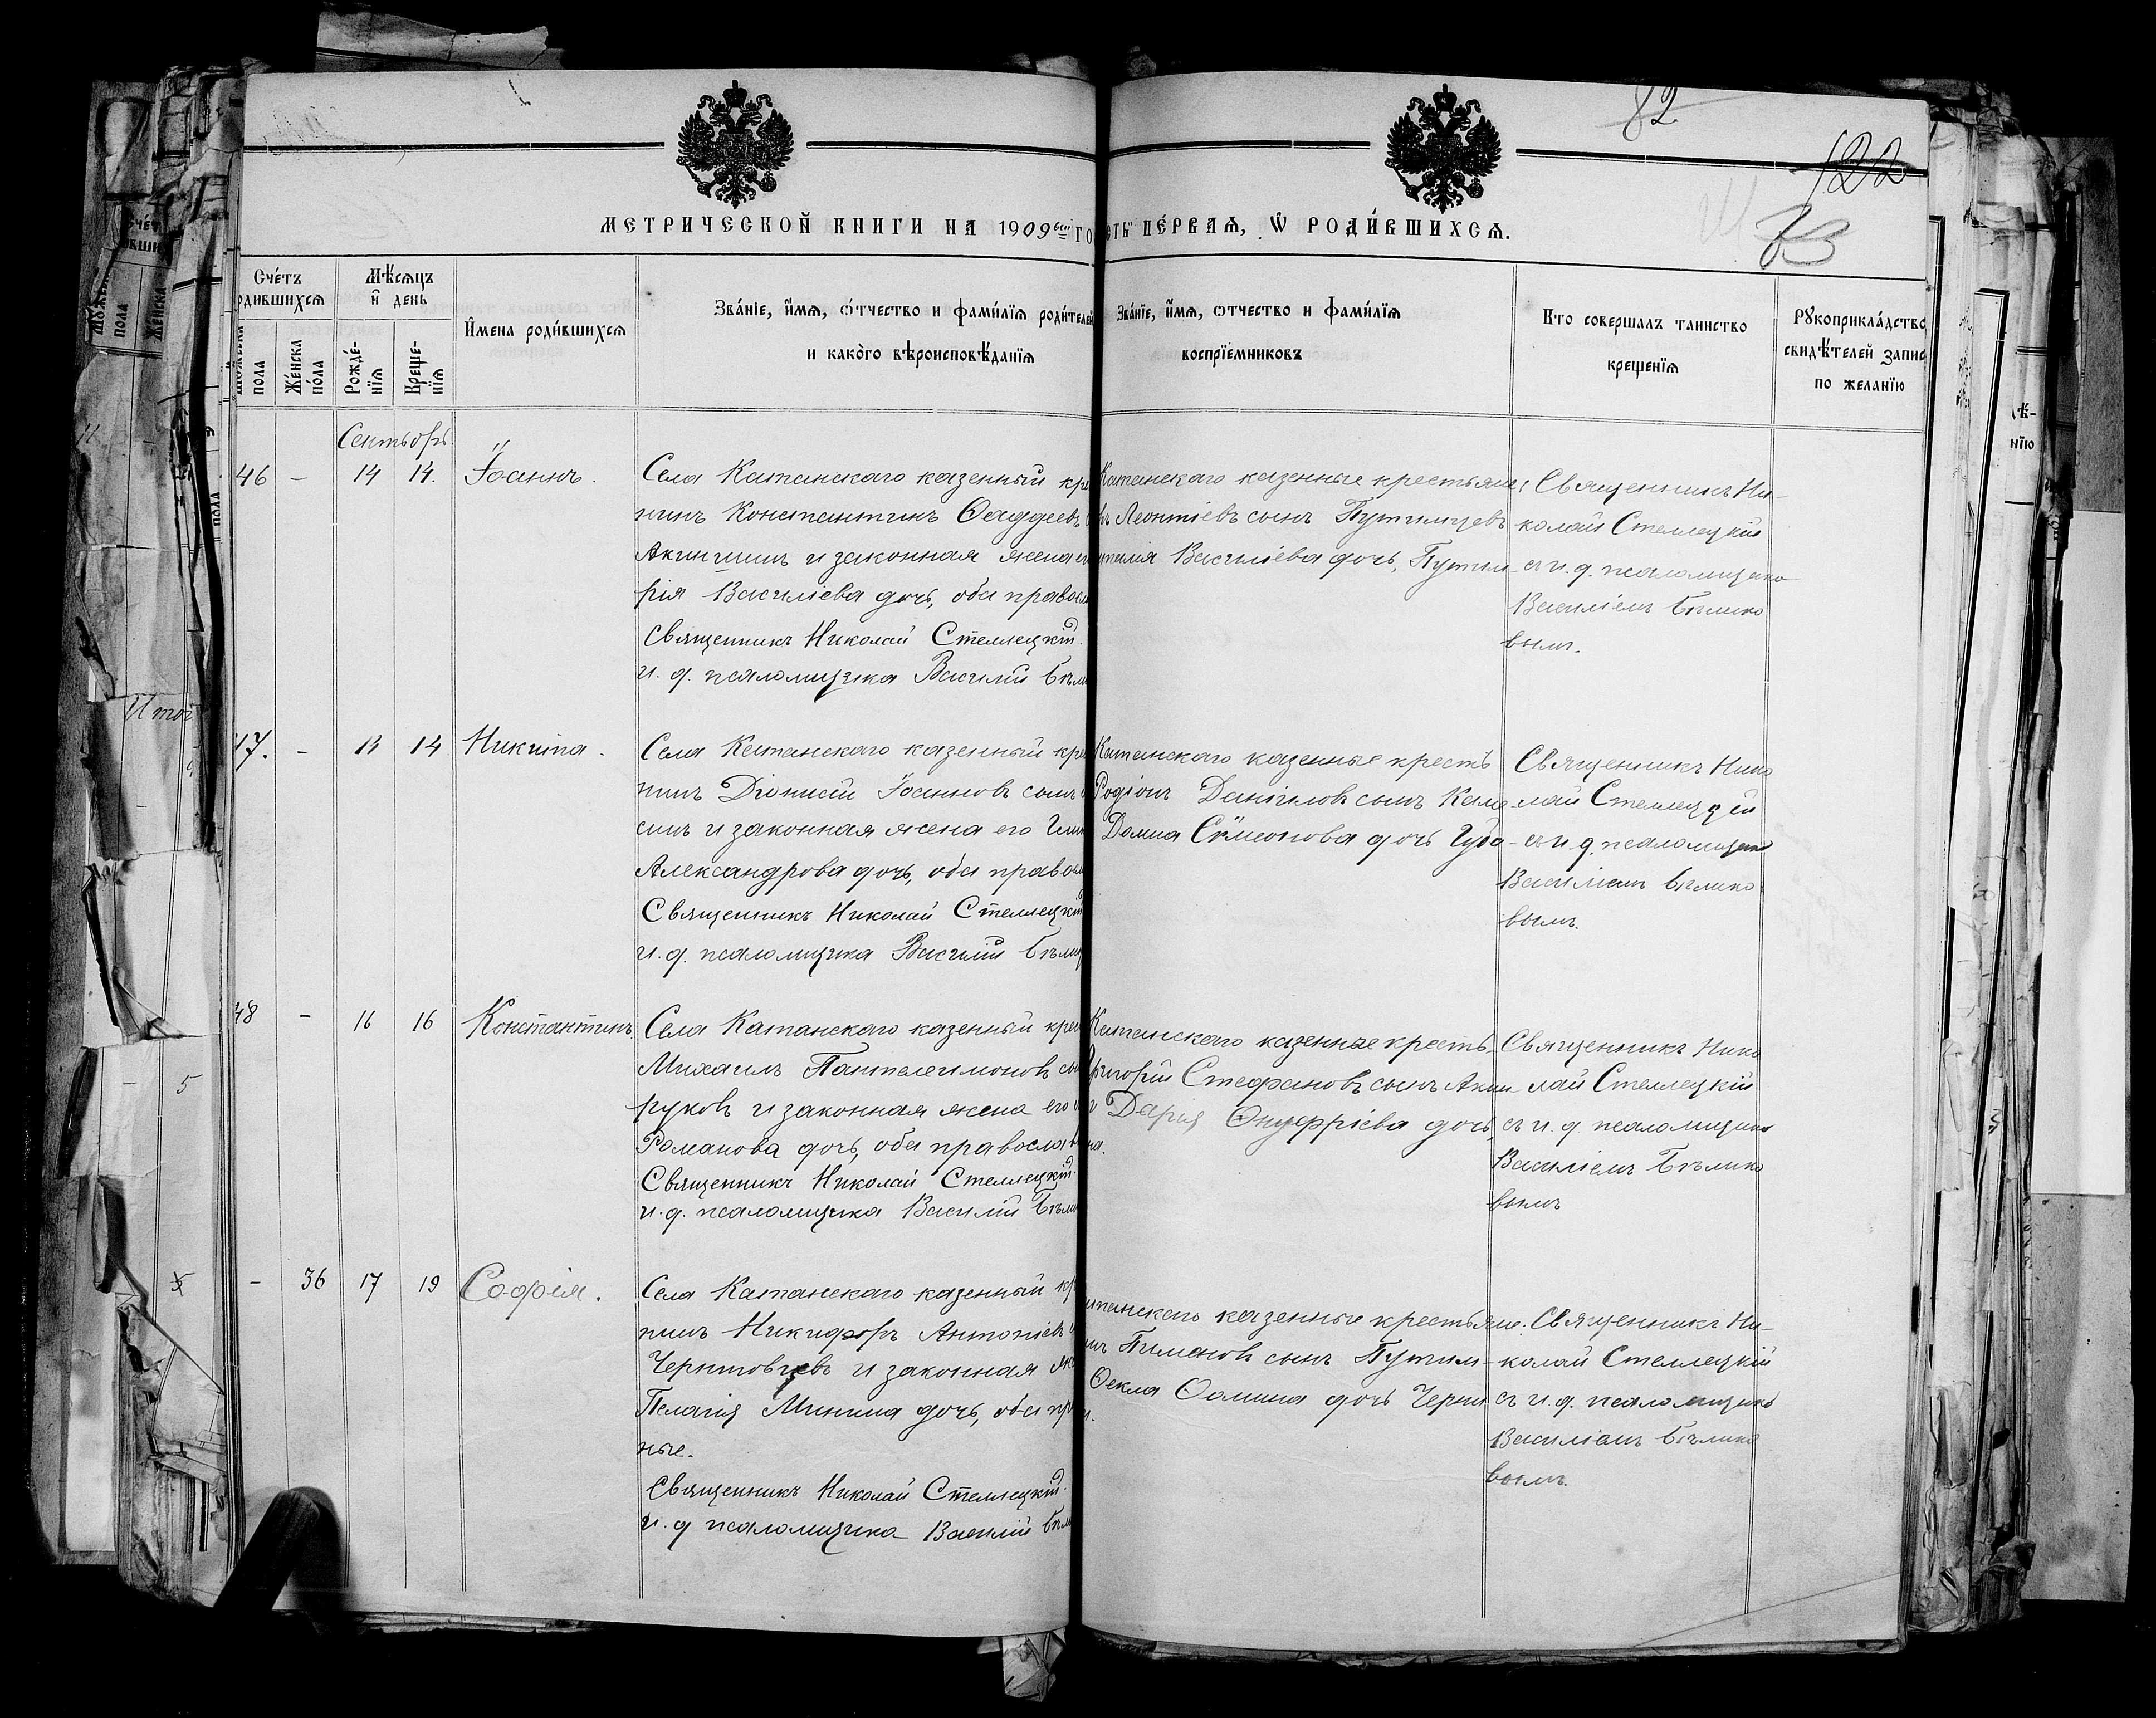 82
122
МЕТРИЧЕСКОЙ КНИГИ НА 1909 ый ГО
СТЬ ПЕРВАЯ, Ѡ РОДИВШИХСЯ.
Счетъ
родившихся
Мѣсяцъ
и день
Имена родившихся
Званіе, имя, отчество и фамилія родителей
и какого вѣроисповѣданія
пола
Женска
пола
Рожде-
нія
Креще-
нія
Званіе, имя, отчество и фамилія
воспріемниковъ
Кто совершалъ таинство
крещенія
Рукоприкладство
свидѣтелей запис
по желанію
Сентябрь
46 - 14 14. Іоаннъ.
Села Катанскаго казенный кре
нинъ Константинъ Ѳаддеевъ
Акиншинъ и законная жена ег
рія Василіева дочь, оба правосл
Священникъ Николай Стеллецкій.
и. д. псаломщика Василій Бѣли
Катанскаго казенные крестьяне:
въ Леонтіевъ сынъ Путимцевъ
талія Василіева дочь, Путим
Священникъ Ни-
колай Стеллецкій
съ и. д. псаломщика
Василіемъ Бѣлико
вымъ.
47. - 13 14 Никита.
Села Катанскаго казенный кре
нинъ Діонисій Іоанновъ сынъ
синъ и законная жена его
Александрова дочь, оба правосл
Священникъ Николай Стеллецкій
и. д. псаломщика Василій Бѣли
Катанскаго казенные кресть
Родіонъ Даніиловъ сынъ Кале
Домна Сѵмеонова дочь Губа-
Священникъ Нико
лай Стеллецкій
съ и. д. псаломщика
Василіемъ Бѣлико
вымъ.
48 - 16 16 Константинъ.
Села Катанскаго казенный крес
Михаилъ Пантелеимоновъ сы
руковъ и законная жена его
Романова дочь, оба православ
Священникъ Николай Стеллецкій.
и. д. псаломщика Василій Бѣли
Катанскаго казенные кресть-
Григорій Стефановъ сынъ Аким
Дарія Онуфріева дочь,
на.
Священникъ Нико
лай Стеллецкій
съ и. д. псаломщика
Василіемъ Бѣлико
вымъ
- 36 17 19 Софія.
Села Катанскаго казенный кр
нинъ Никифоръ Антоніевъ
и законная же
Пелагія Минина дочь, оба пр
ные.
Священникъ Николай Стеллецкій.
и. д псаломщика Василій Бѣли
танскаго казенные крестьяне:
Пименовъ сынъ Путим-
Ѳекла Ѳомина дочь Черни
Священникъ Ни-
колай Стеллецкій
съ и. д. псаломщика
Василіемъ Бѣлико
вымъ.